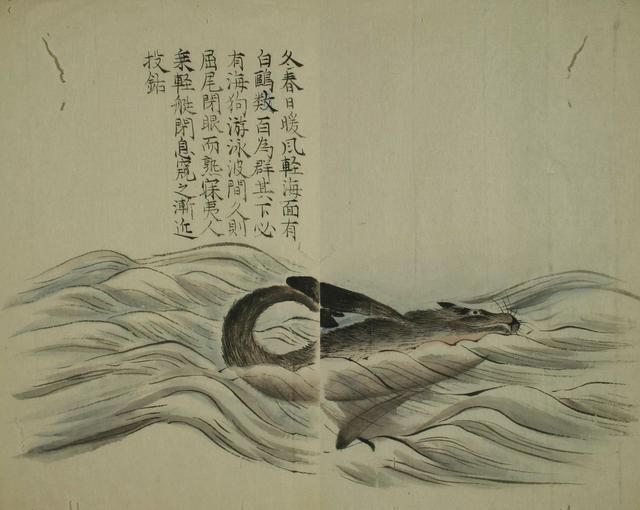 冬春日暖風軽海面有
白鷗数百為群其下必
有海狗游泳波間久則
屈尾閉眼而熟寐夷人
乗軽艇閉息窺之漸近
投鈷